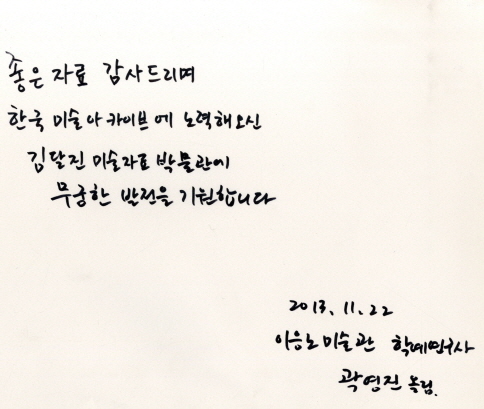 좋은 자료 감사드리며
한국 미술아카이브에 노력해오신
김달진 미술자료 박물관에
무궁한 발전을 기원합니다
2013. 11. 22
이응노미술관 학예연구사
곽영진 드림.